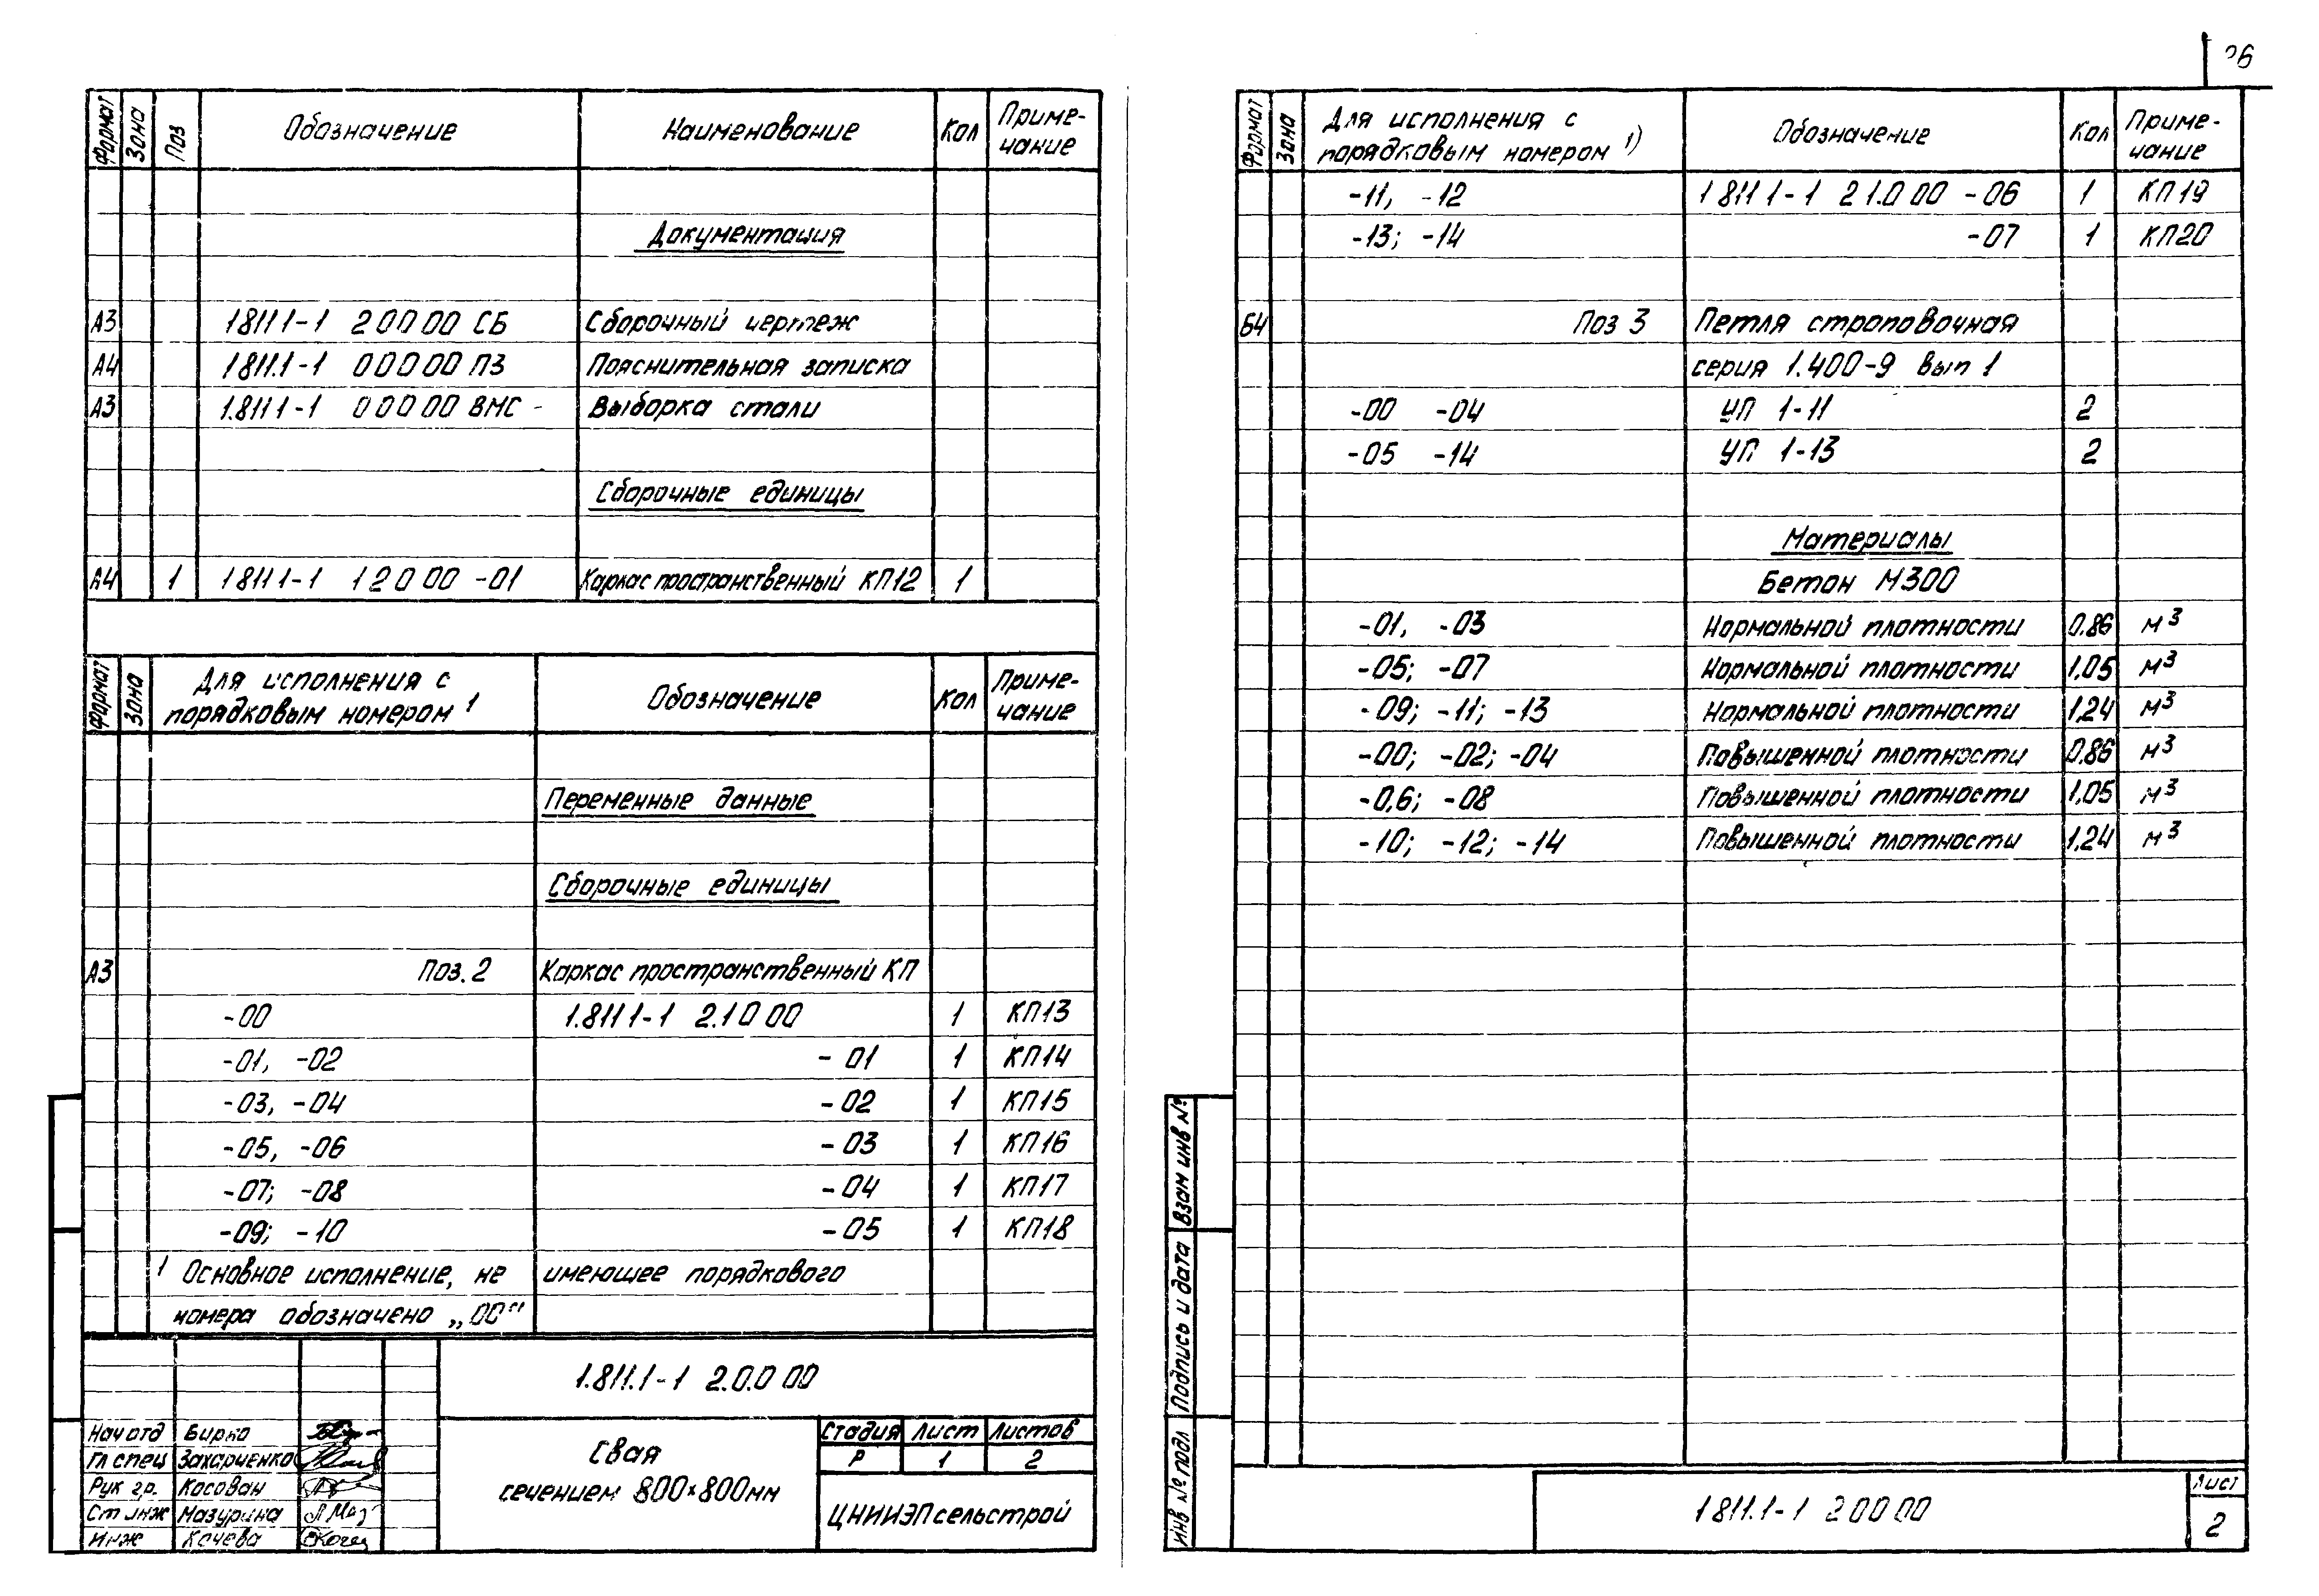 Формат Зона Поз Обозначение Наименование Кол Приме-
чание
Документация
А3 1811 1-1 2 0 0 00 СБ Сборочный чертеж
А4 1811.1-1 0 0 0 00 ПЗ Пояснительная записка
А3 1.811 1-1 0 0 0 00 ВМС - Выборка стали
Сборочные единицы
А4 1 1811 1-1 1 2 0 00 -01 Каркас пространственный КП12 1
Формат Зона Для исполнения с
порядковым номером 1 Обозначение Кол Приме-
чание
Переменные данные
Сборочные единицы
А3 Поз. 2 Каркас пространственный КП
-00 1.811 1-1 2.1 0 00 1 КП13
-01, -02 - 01 1 КП14
-03, -04 - 02 1 КП15
-05, -06 - 03 1 КП16
-07; -08 - 04 1 КП17
-09; -10 - 05 1 КП18
1 Основное исполнение, не имеющее порядкового
номера обозначено „00"
1.811.1-1 2.0.0 00
Нач отд Бирко
Гл спец Захарченко
Рук гр. Косован
Ст инж Мазурина
Инж Качева
Свая
сечением 800×800мм
Стадия Лист Листов
Р 1 2
ЦНИИЭПсельстрой
Формат Зона Для исполнения с
порядковым номером 1) Обозначение Кол Приме-
чание
-11, -12 1 811 1-1 2 1.0 00 -06 1 КП19
-13; -14 -07 1 КП20
Б4 Поз 3 Петля строповочная
серия 1.400-9 вып 1
-00 -04 УП 1-11 2
-05 -14 УП 1-13 2
Материалы
Бетон М300
-01, -03 Нормальной плотности 0.86 м³
-05; -07 Нормальной плотности 1,05 м³
-09; -11; -13 Нормальной плотности 1,24 м³
-00; -02; -04 Повышенной плотности 0,86 м³
-0,6; -08 Повышенной плотности 1,05 м³
-10; -12; -14 Повышенной плотности 1,24 м³
Взам инв №
Подпись и дата
Инв № подл
1 811.1-1 2 0 0 00
Лист
2